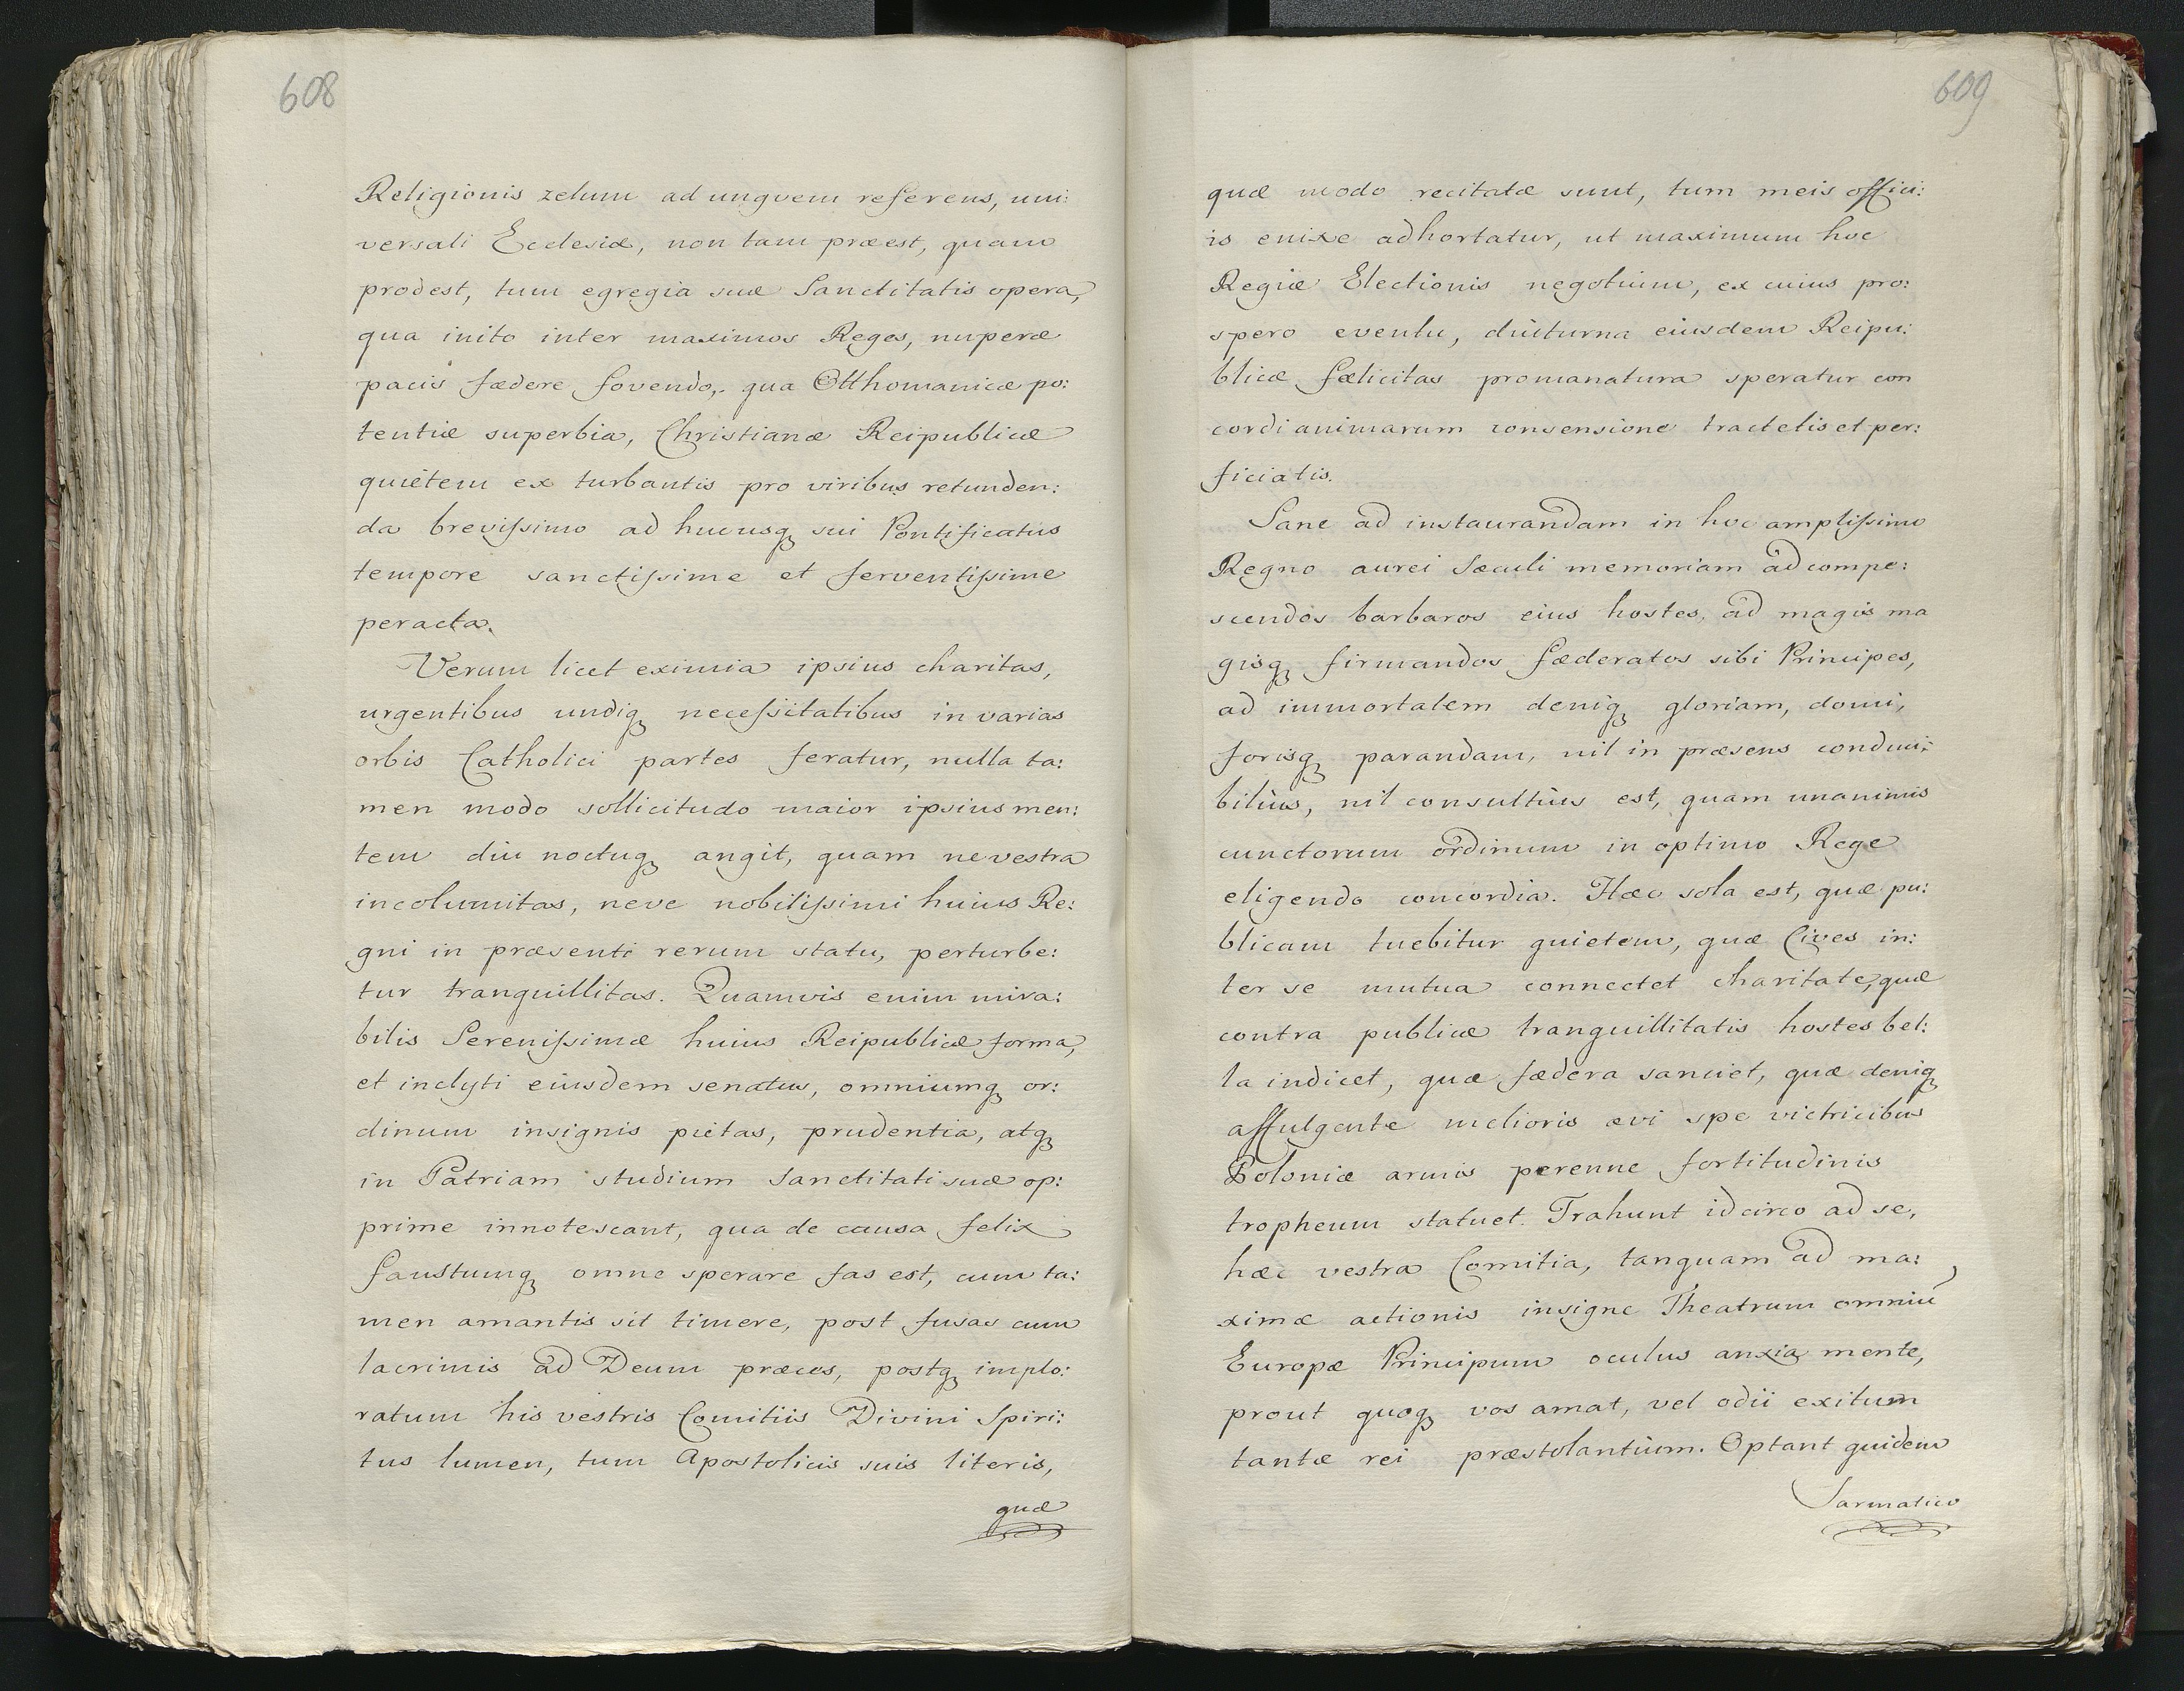 608
Religionis zelum ad ungvem referens, uni:
versali Ecclesiæ, non tam præest, quam
prodest, tum egregia suæ Sanctitatis opera,
qua inito inter maximos Reges, nuperæ
pacis fædere fovendo, qua Otthomanicæ po:
tentiæ superbia, Christianæ Reipublicæ
quiètem ex turbantis pro viribus retunden:
da brevissimo ad hucusq sui Pontificatus
tempore sanctissime et ferventissime
peracta.
Verum licet eximia ipsius charitas,
urgentibus undiq necessitatibus in varias
orbis Catholici partes feratur, nulla ta:
men modo sollicitudo maior ipsius men:
tem diu noctuq angit, quam ne vestra
incolumitas, neve nobilissimi huius Re:
gni in præsenti rerum statu, perturbe:
tur tranquillitas. Quamvis enim mira:
bilis Serenissimæ huius Reipublicæ forma,
et inclyti eiusdem senatus, omniumq or:
dinum insignis pietas, prudentia, atq
in Patriam studium Sanctitati suæ op:
prime innotescant, qua de causa felix
faustumq omne sperare fas est, cum ta:
men amantis sit timere, post fusas cum
lacrimis ad Deum præces, postq implo:
ratum his vestris Comitiis Divini Spiri:
tus lumen, tum Apostolicis suis literis,
quæ
609
quæ modo recitatæ sunt, tum meis offici:
is enixe adhortatur, ut maximum hoc
Regiæ Electionis negotium, ex cuius pro:
spero eventu, diùturna eiusdem Reipu:
blicæ fælicitas promanatura speratur con
cordi animarum consensione tractetis et per:
ficiatis.
Sane ad instaurandam in hoc amplissimo
Regno aurei Sæculi memoriam ad compe:
scendos barbaros eius hostes, ad magis ma
gisq firmandos fæderatos sibi Principes,
ad immortalem deniq gloriam, domi,
forisq parandam, nil in præsens conduci:
biliùs, nil consultiùs est, quam unanimis
cunctorum ordinum in optimo Rege
eligendo concordia. Hæc sola est, quæ pu:
blicam tuebitur quietem, quæ Cives in:
ter se mutua connectet charitate, quæ
contra publicæ tranquillitatis hostes bel:
la indicet, quæ fædera sanciet, quæ deniq
affulgente melioris ævi spe victricibus
Poloniæ armis perenne fortitudinis
tropheum statuet. Trahunt idcirco ad se,
hæc vestra Comitia, tanquam ad ma:
ximæ actionis insigne Theatrum omniū
Europæ Principum oculus anxia mente,
prout quoq vos amat, vel odii exitum
tantæ rei præstolantium. Optant quidem
Sarmatico